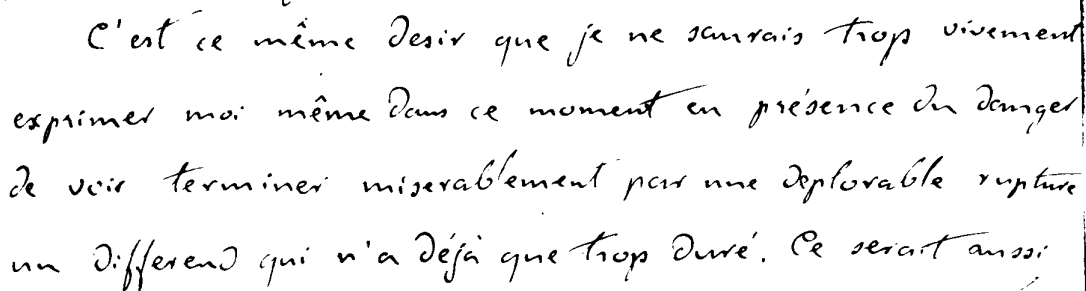 C'est ce même desir que je ne saurais trop vivement
exprimer moi même dans ce moment en présence du danger
de voir terminer miserablement par une deplorable rupture
un differend qui n'a déjà que trop duré. Ce serait aussi